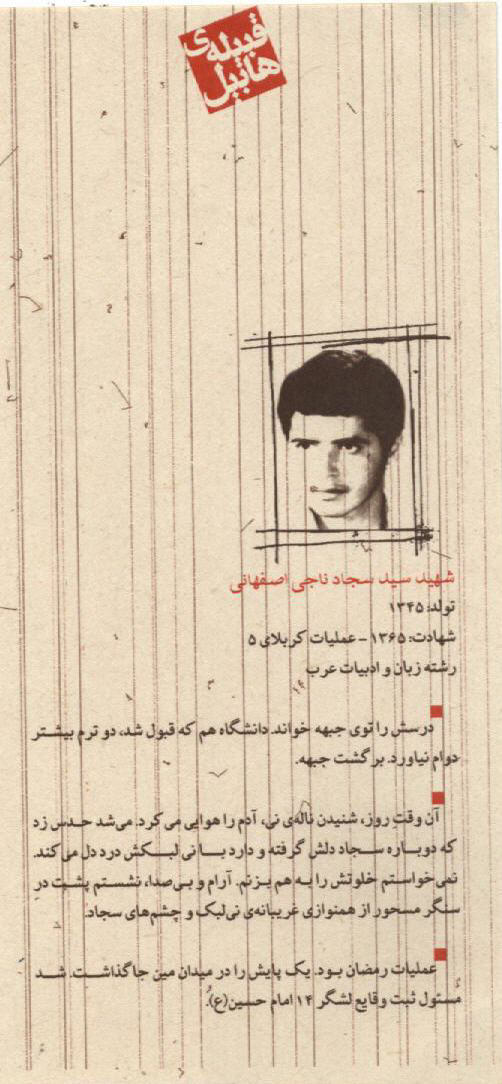 قبیله‌ی
هابیل
شهید سید سجاد ناجی اصفهانی
تولد: ۱۳۴۵
شهادت: ۱۳۶۵ - عملیات کربلای ۵
رشته زبان و ادبیات عرب
درسش را توی جبهه خواند. دانشگاه هم که قبول شد، دو ترم بیشتر
دوام نیاورد. برگشت جبهه.
آن وقتِ روز، شنیدن ناله‌ی نی، آدم را هوایی می‌کرد. می‌شد حدس زد
که دوباره سجاد دلش گرفته و دارد با نی لبکش درد دل می‌کند.
نمی‌خواستم خلوتش را به هم بزنم. آرام و بی‌صدا، نشستم پشت درِ
سنگر مسحور از همنوازی غریبانه‌ی نی‌لبک و چشم‌های سجاد.
عملیات رمضان بود. یک پایش را در میدان مین جا گذاشت. شد
مُسئول ثبت وقایع لشگر ۱۴ امام حسین(ع).